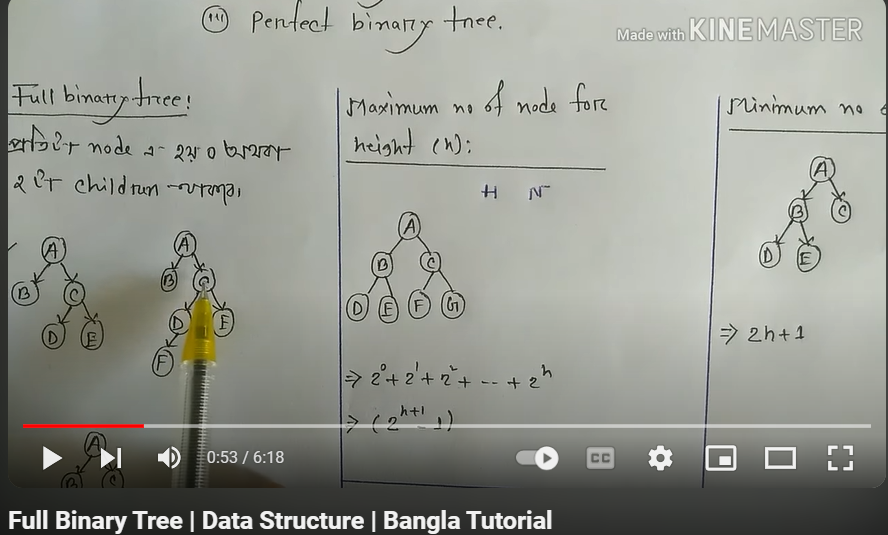 (iii) Perfect binary tree.
Made with KINEMASTER
Full binary tree:
প্রতিটি node এ হয় 0 অথবা
২ টি children থাকবে।
A
B C
D E
A
B C
D E
F
A
B C
Maximum no of node for
height (h):
H N
A
B C
D E F G
⇒ 2⁰ + 2¹ + 2² + -- + 2ʰ
⇒ (2ʰ⁺¹ - 1)
Minimum no
A
B C
D E
⇒ 2h+1
0:53 / 6:18
CC
Full Binary Tree | Data Structure | Bangla Tutorial